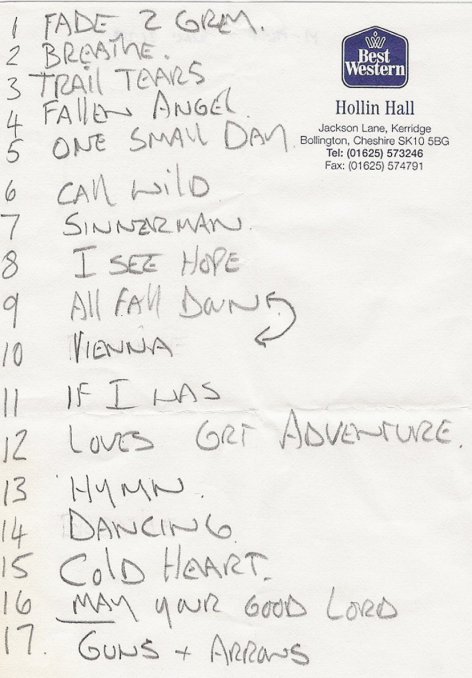 1 FADE 2 GREY.
2 BREATHE.
3 TRAIL TEARS
4 FALLEN ANGEL.
5 ONE SMALL DAY.
6 CALL WILD
7 SINNERMAN.
8 I SEE HOPE
9 ALL FALL DOWN
10 VIENNA
11 IF I WAS
12 LOVES GRT ADVENTURE.
13 HYMN.
14 DANCING.
15 COLD HEART.
16 MAY YOUR GOOD LORD
17. GUNS + ARROWS
Best
Western
Hollin Hall
Jackson Lane, Kerridge
Bollington, Cheshire SK10 5BG
Tel: (01625) 573246
Fax: (01625) 574791